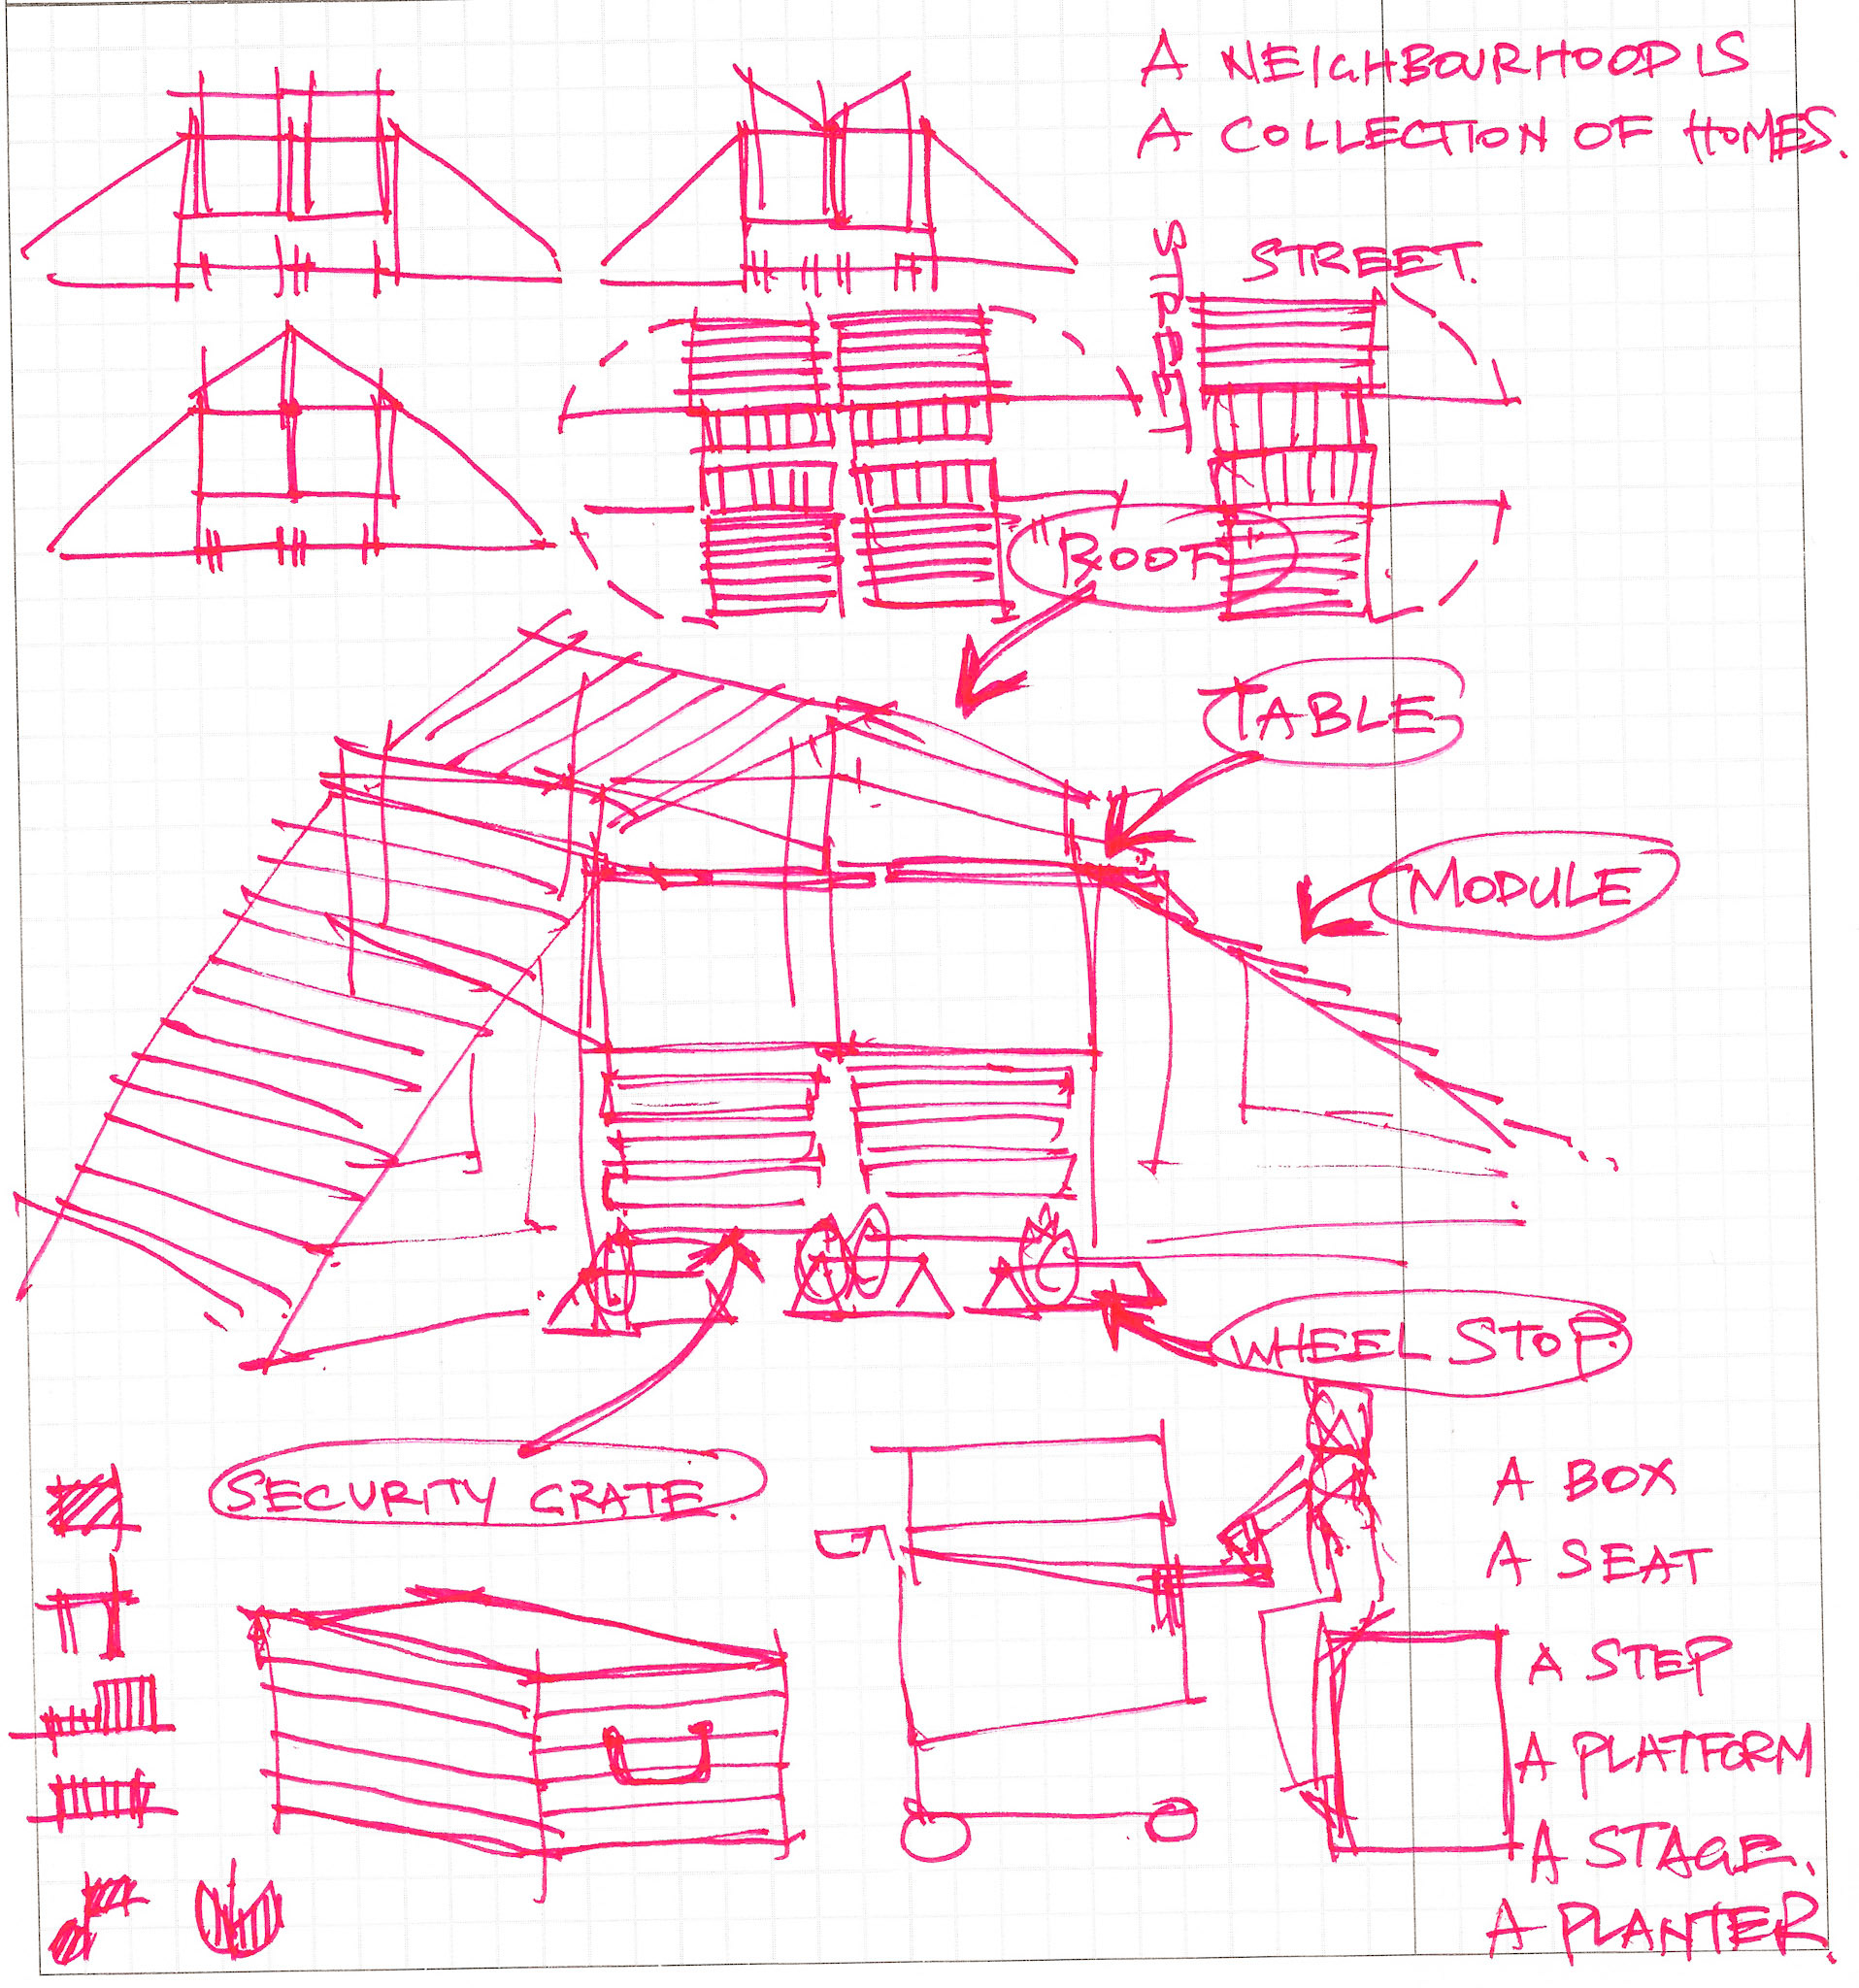 A NEIGHBOURHOOD IS
A COLLECTION OF HOMES.
STREET.
STREET
"ROOF"
TABLE
MODULE
WHEEL STOP.
SECURITY CRATE.
A BOX
A SEAT
A STEP
A PLATFORM
A STAGE.
A PLANTER.